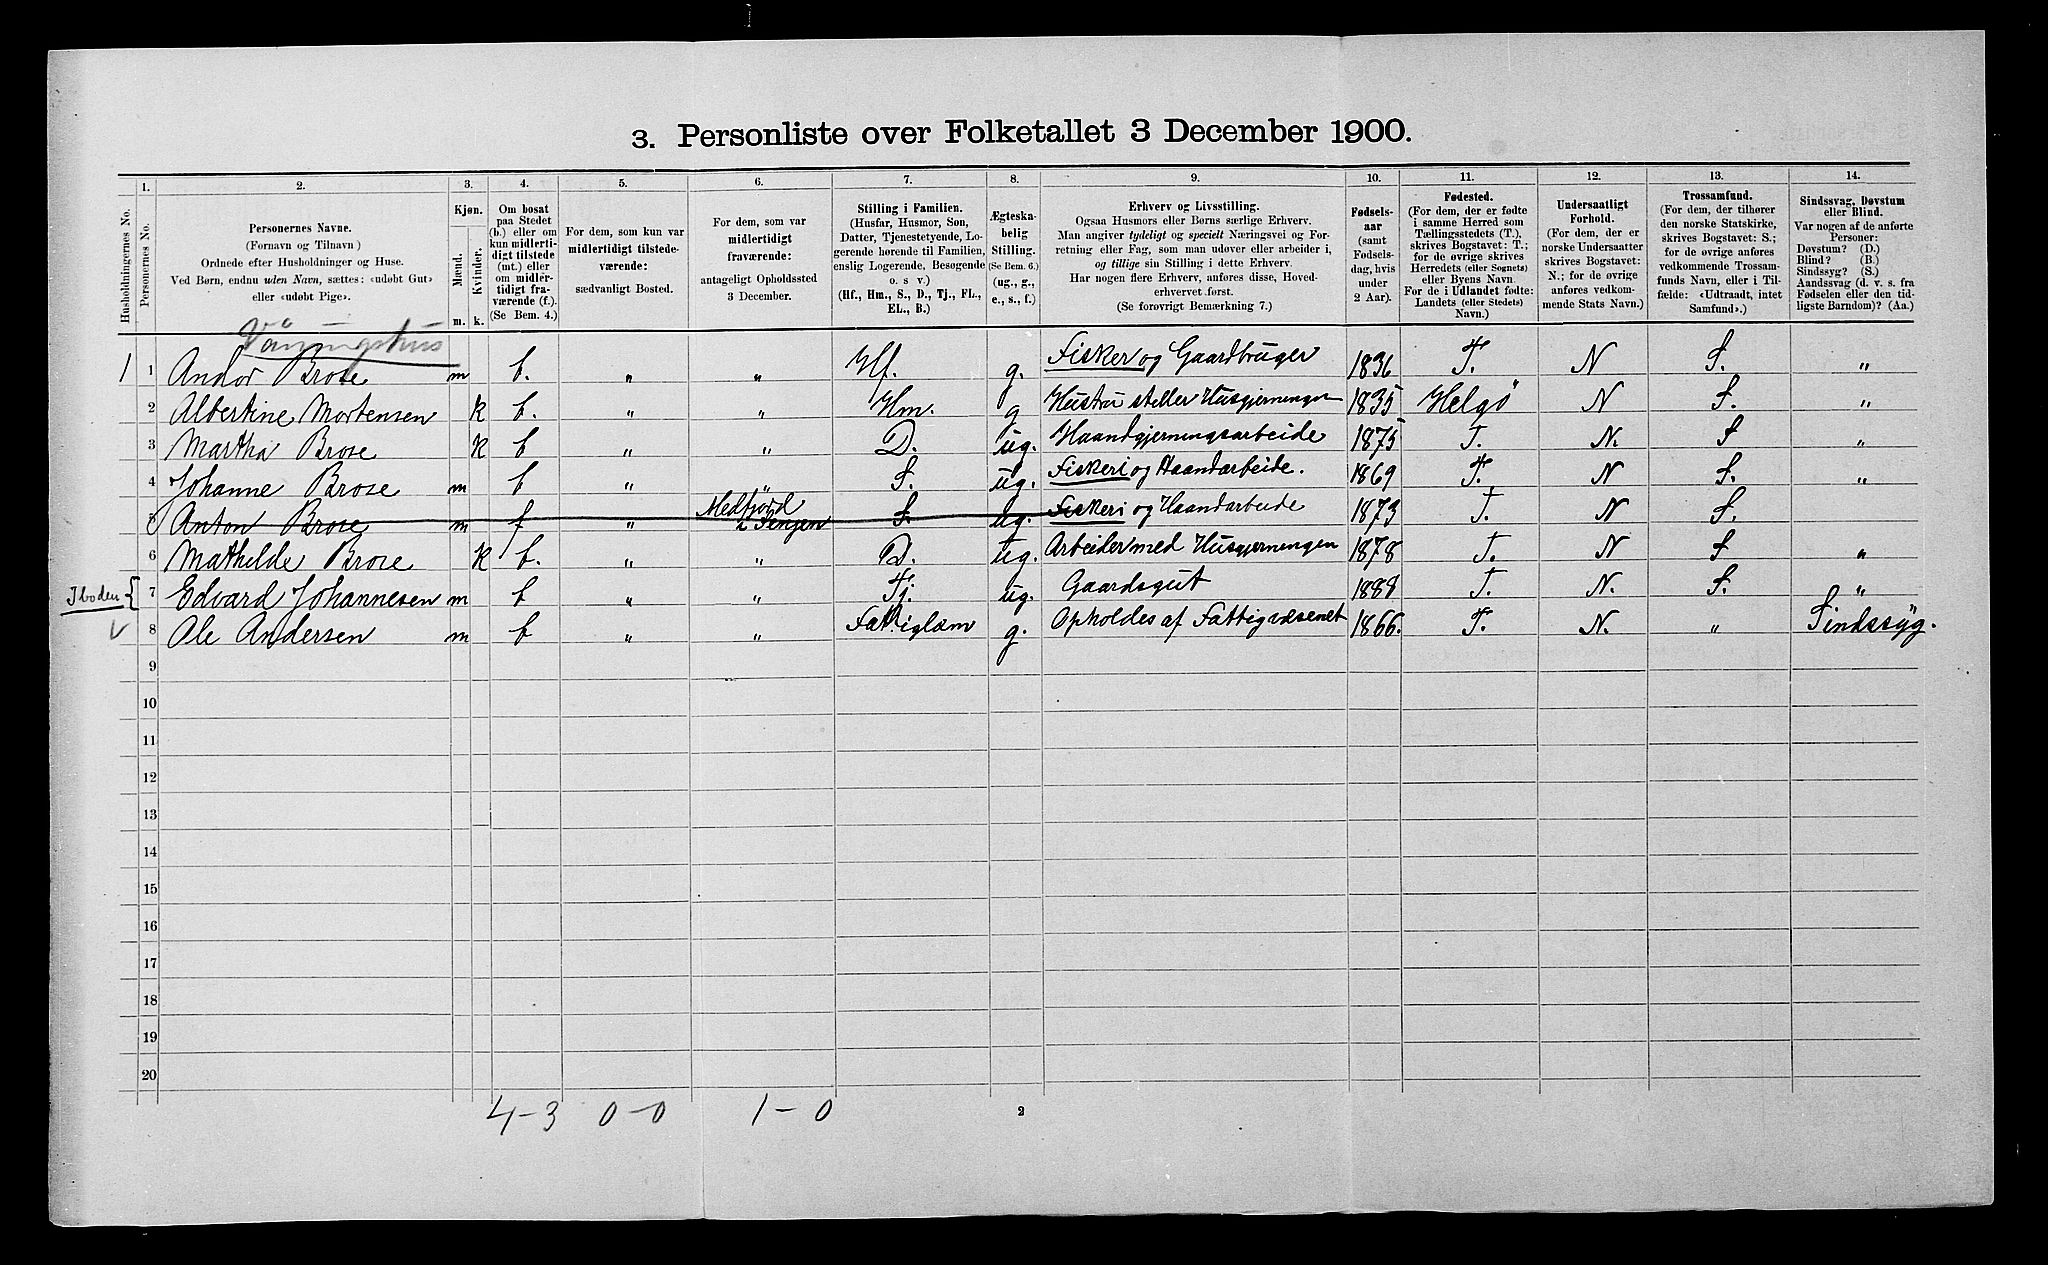 3. Personliste over Folketallet 3 December 1900.
Husholdningernes No.
1. Personernes No.
2. Personernes Navne. (Fornavn og Tilnavn) Ordnede efter Husholdninger og Huse. Ved Børn, endnu uden Navn, sættes: «udøbt Gut» eller «udøbt Pige».
3. Kjøn. Mænd. m. Kvinder. k.
4. Om bosat paa Stedet (b.) eller om kun midlertidigt tilstede (mt.) eller om midlertidigt fraværende (f.) (Se Bem. 4.)
5. For dem, som kun var midlertidigt tilstedeværende: sædvanligt Bosted.
6. For dem, som var midlertidigt fraværende: antageligt Opholdssted 3 December.
7. Stilling i Familien. (Husfar, Husmor, Søn, Datter, Tjenestetyende, Logerende hørende til Familien, enslig Logerende, Besøgende o. s v.) (Hf., Hm., S., D., Tj., FL., EL., B.)
8. Ægteskabelig Stilling. (Se Bem. 6.) (ug., g., e., s., f.)
9. Erhverv og Livsstilling. Ogsaa Husmors eller Børns særlige Erhverv. Man angiver tydeligt og specielt Næringsvei og Forretning eller Fag, som man udøver eller arbeider i, og tillige sin Stilling i dette Erhverv. Har nogen flere Erhverv, anføres disse, Hovederhvervet først. (Se forøvrigt Bemærkning 7.)
10. Fødselsaar (samt Fødselsdag, hvis under 2 Aar).
11. Fødested. (For dem, der er fødte i samme Herred som Tællingsstedets (T.), skrives Bogstavet: T.; for de øvrige skrives Herredets (eller Sognets) eller Byens Navn. For de i Udlandet fødte: Landets (eller Stedets) Navn.)
12. Undersaatligt Forhold. (For dem, der er norske Undersaatter skrives Bogstavet: N.; for de øvrige anføres vedkommende Stats Navn.)
13. Trossamfund. (For dem, der tilhører den norske Statskirke, skrives Bogstavet: S.; for de øvrige anføres vedkommende Trossamfunds Navn, eller i Tilfælde: «Udtraadt, intet Samfund».)
14. Sindssvag, Døvstum eller Blind. Var nogen af de anførte Personer: Døvstum? (D.) Blind? (B.) Sindssyg? (S.) Aandssvag (d. v. s. fra Fødselen eller den tidligste Barndom)? (Aa.)
Vaaningshus
1 1 Andor Brose m b. " " Hf. g. Fisker og Gaardbruger 1836 T. N S. "
2 Albertine Mortensen k b. " " Hm. g Hustru steller Husgjerningen 1835 Helgö N S. "
3 Martha Brose k b " " D. ug. Haandgjerningsarbeide 1875 T. N. S "
4 Johanne Brose m b " " S. ug. Fiskeri og Haandarbeide. 1869 T. N S. "
5 Anton Brose m f " Medfjord i Senjen S. ug. Fiskeri og Haandarbeide 1873 T. N S.
6 Mathelde Brose k b. " " D. ug. Arbeider med Husgjerningen 1878 T. N S "
I boden { 7 Edvard Johannesen m b " " Tj. ug. Gaardsgut 1888 T. N. S. "
8 Ole Andersen m b " " Fattiglæm g. Opholdes af Fattigvæsenet 1866. T. N. " Sindssyg.
9
10
11
12
13
14
15
16
17
18
19
20
4-3 0-0 1-0 2